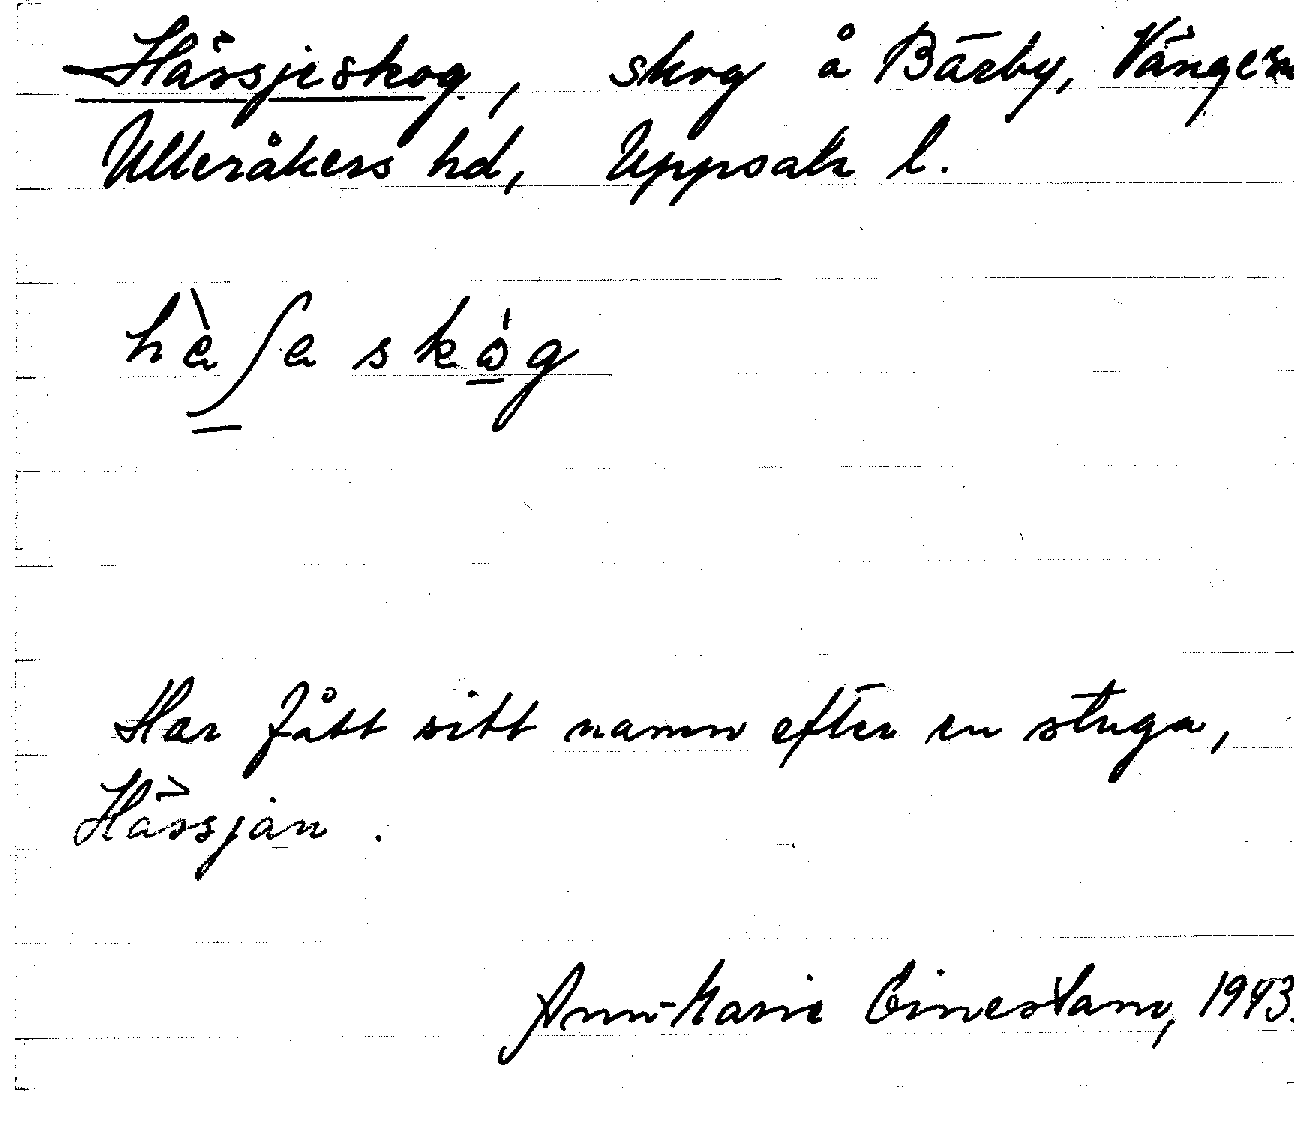 Hässjeskog, skog å Bärby, Vänge sn
Ulleråkers hd, Uppsala l.
hàʃa skóg
Har fått sitt namn efter en stuga,
Hässjan.
Ann-Marie 1943.